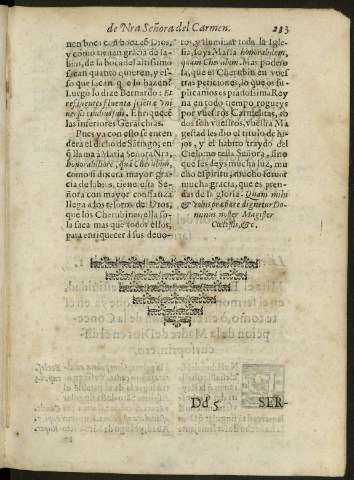 de Nra Señora del Carmen. 213
nen boca con boca cõ Dios,
y como tienan gracia de la-
bios, de la boca del altissimo
sacan quanto quieren, y es-
so que sacan que lo hazen?
Luego lo dize Bernardo:
las inferiores Gerarchias.
Pues ya con esto se enten
derá el dicho de Sãtiago; en
q̃ llama à Maria Señora Nra,
como si dixera mayor gra-
cia de labios, tiene esta Se-
ñora con mayor confianza
llega a los tesoros de Dios,
que los Cherubines, ella so-
la saca mas que todos ellos,
para enriquecer â sus deuo-
tos, y iluminar toda la Igle-
sia, soys Maria honorabilem,
quam Cherubim. Mas podero
sa, que el Cherubin en vues-
tras peticiones, lo que os su-
plicamos es piadosissima Rey
na en todo tiempo rogueys
por vuestros Carmelitas, à to-
dos son vuestros, vuestra Ma
gestad les dio el titulo de hi-
jos, y el habito traydo del
Cielo no tella Señora, sino
que les deys mucha luz, mu
cho espiritu, mucho feruor
mucha gracia, que es pren-
das de la gloria. Quam mihi
& vobis præstare dignetur Do-
minus noster Magister
Cælestis, &c.
Dd 5 SER-